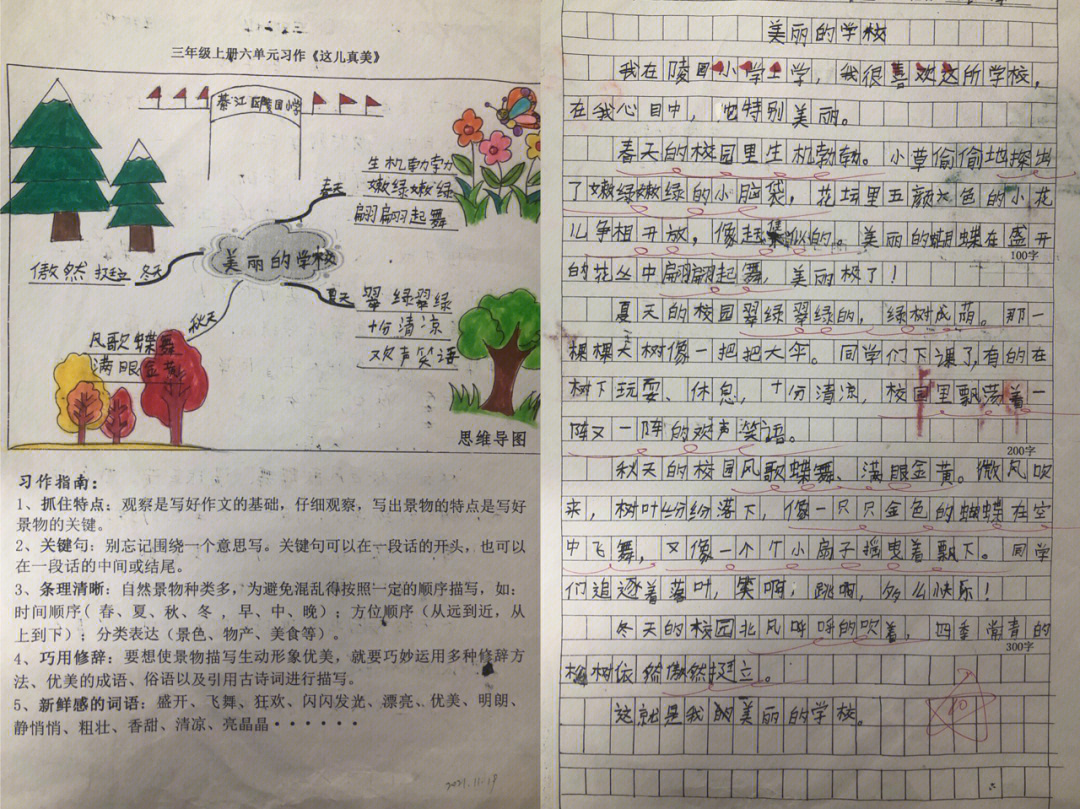 三年级上册六单元习作《这儿真美》
綦江区陵园小学
生机勃勃
嫩绿嫩绿
翩翩起舞
春天
美丽的学校
傲然挺立
冬天
夏天
翠绿翠绿
十份清凉
欢声笑语
秋天
风歌蝶舞
满眼金黄
思维导图
习作指南:
1、抓住特点:观察是写好作文的基础,仔细观察,写出景物的特点是写好
景物的关键。
2、关键句:别忘记围绕一个意思写。关键句可以在一段话的开头,也可以
在一段话的中间或结尾。
3、条理清晰:自然景物种类多,为避免混乱得按照一定的顺序描写,如:
时间顺序( 春、夏、秋、冬 , 早、中、晚);方位顺序(从远到近,从
上到下);分类表达(景色、物产、美食等)。
4、巧用修辞:要想使景物描写生动形象优美,就要巧妙运用多种修辞方
法、优美的成语、俗语以及引用古诗词进行描写。
5、新鲜感的词语:盛开、飞舞、狂欢、闪闪发光、漂亮、优美、明朗、
静悄悄、粗壮、香甜、清凉、亮晶晶······
2021.11.19
美丽的学校
我在陵园小学上学,我很喜欢这所学校,
在我心目中,它特别美丽。
春天的校园里生机勃勃。小草偷偷地探出
了嫩绿嫩绿的小脑袋,花坛里五颜六色的小花
儿争相开放,像赶集似的。美丽的蝴蝶在盛开
100字
的花丛中翩翩起舞,美丽极了!
夏天的校园翠绿翠绿的,绿树成荫。那一
棵棵大树像一把把大伞。同学们下课了,有的在
树下玩耍、休息,十份清凉,校园里飘荡着一
阵又一阵的欢声笑语。
200字
秋天的校园风歌蝶舞、满眼金黄。微风吹
来,树叶纷纷落下,像一只只金色的蝴蝶在空
中飞舞,又像一个个小扇子摇曳着飘下。同学
们追逐着落叶,笑啊,跳啊,多么快乐!
冬天的校园北风呼呼的吹着,四季常青的
300字
树依然傲然挺立。
这就是我的美丽的学校。